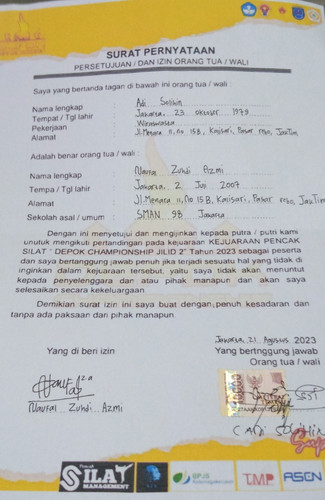 SURAT PERNYATAAN
PERSETUJUAN / DAN IZIN ORANG TUA / WALI
Saya yang bertanda tagan di bawah ini orang tua / wali :
Nama lengkap : Adi
Tempat / Tgl lahir : Jakarta, 23 oktober 1979
Pekerjaan : Wiraswasta
Alamat : Jl.Menara II, No 15B, Kalisari, Pasar rebo, JakTim
Adalah benar orang tua / wali
Nama lengkap : Naufal Zuhdi Azmi
Tempa / Tgl lahir : Jakarta, 2 Juli 2007
Alamat : Jl.Menara II, No 15 B, Kalisari, Pasar rebo, JakTim
Sekolah asal / umum : SMAN 98 Jakarta
Dengan ini menyetujui dan mengijinkan kepada putra / putri kami
unutuk mengikuti pertandingan pada kejuaraan KEJUARAAN PENCAK
SILAT " DEPOK CHAMPIONSHIP JILID 2" Tahun 2023 sebagai peserta
dan saya bertanggung jawab penuh jika terjadi sesuatu hal yang tidak di
inginkan dalam kejuaraan tersebut, yaitu saya tidak akan menuntut
kepada penyelenggara dan atau pihak manapun dan akan saya
selesaikan secara kekeluargaan.
Demikian surat izin ini saya buat dengan penuh kesadaran dan
tanpa ada paksaan dari pihak manapun.
Jakarta, 21 Agustus 2023
Yang di beri izin
Yang bertnggung jawab
Orang tua / wali
Naufal Zuhdi Azmi
Pencak
SILAT
MANAGEMENT
BPJS
Ketenagakerjaan
TMP
ASEN